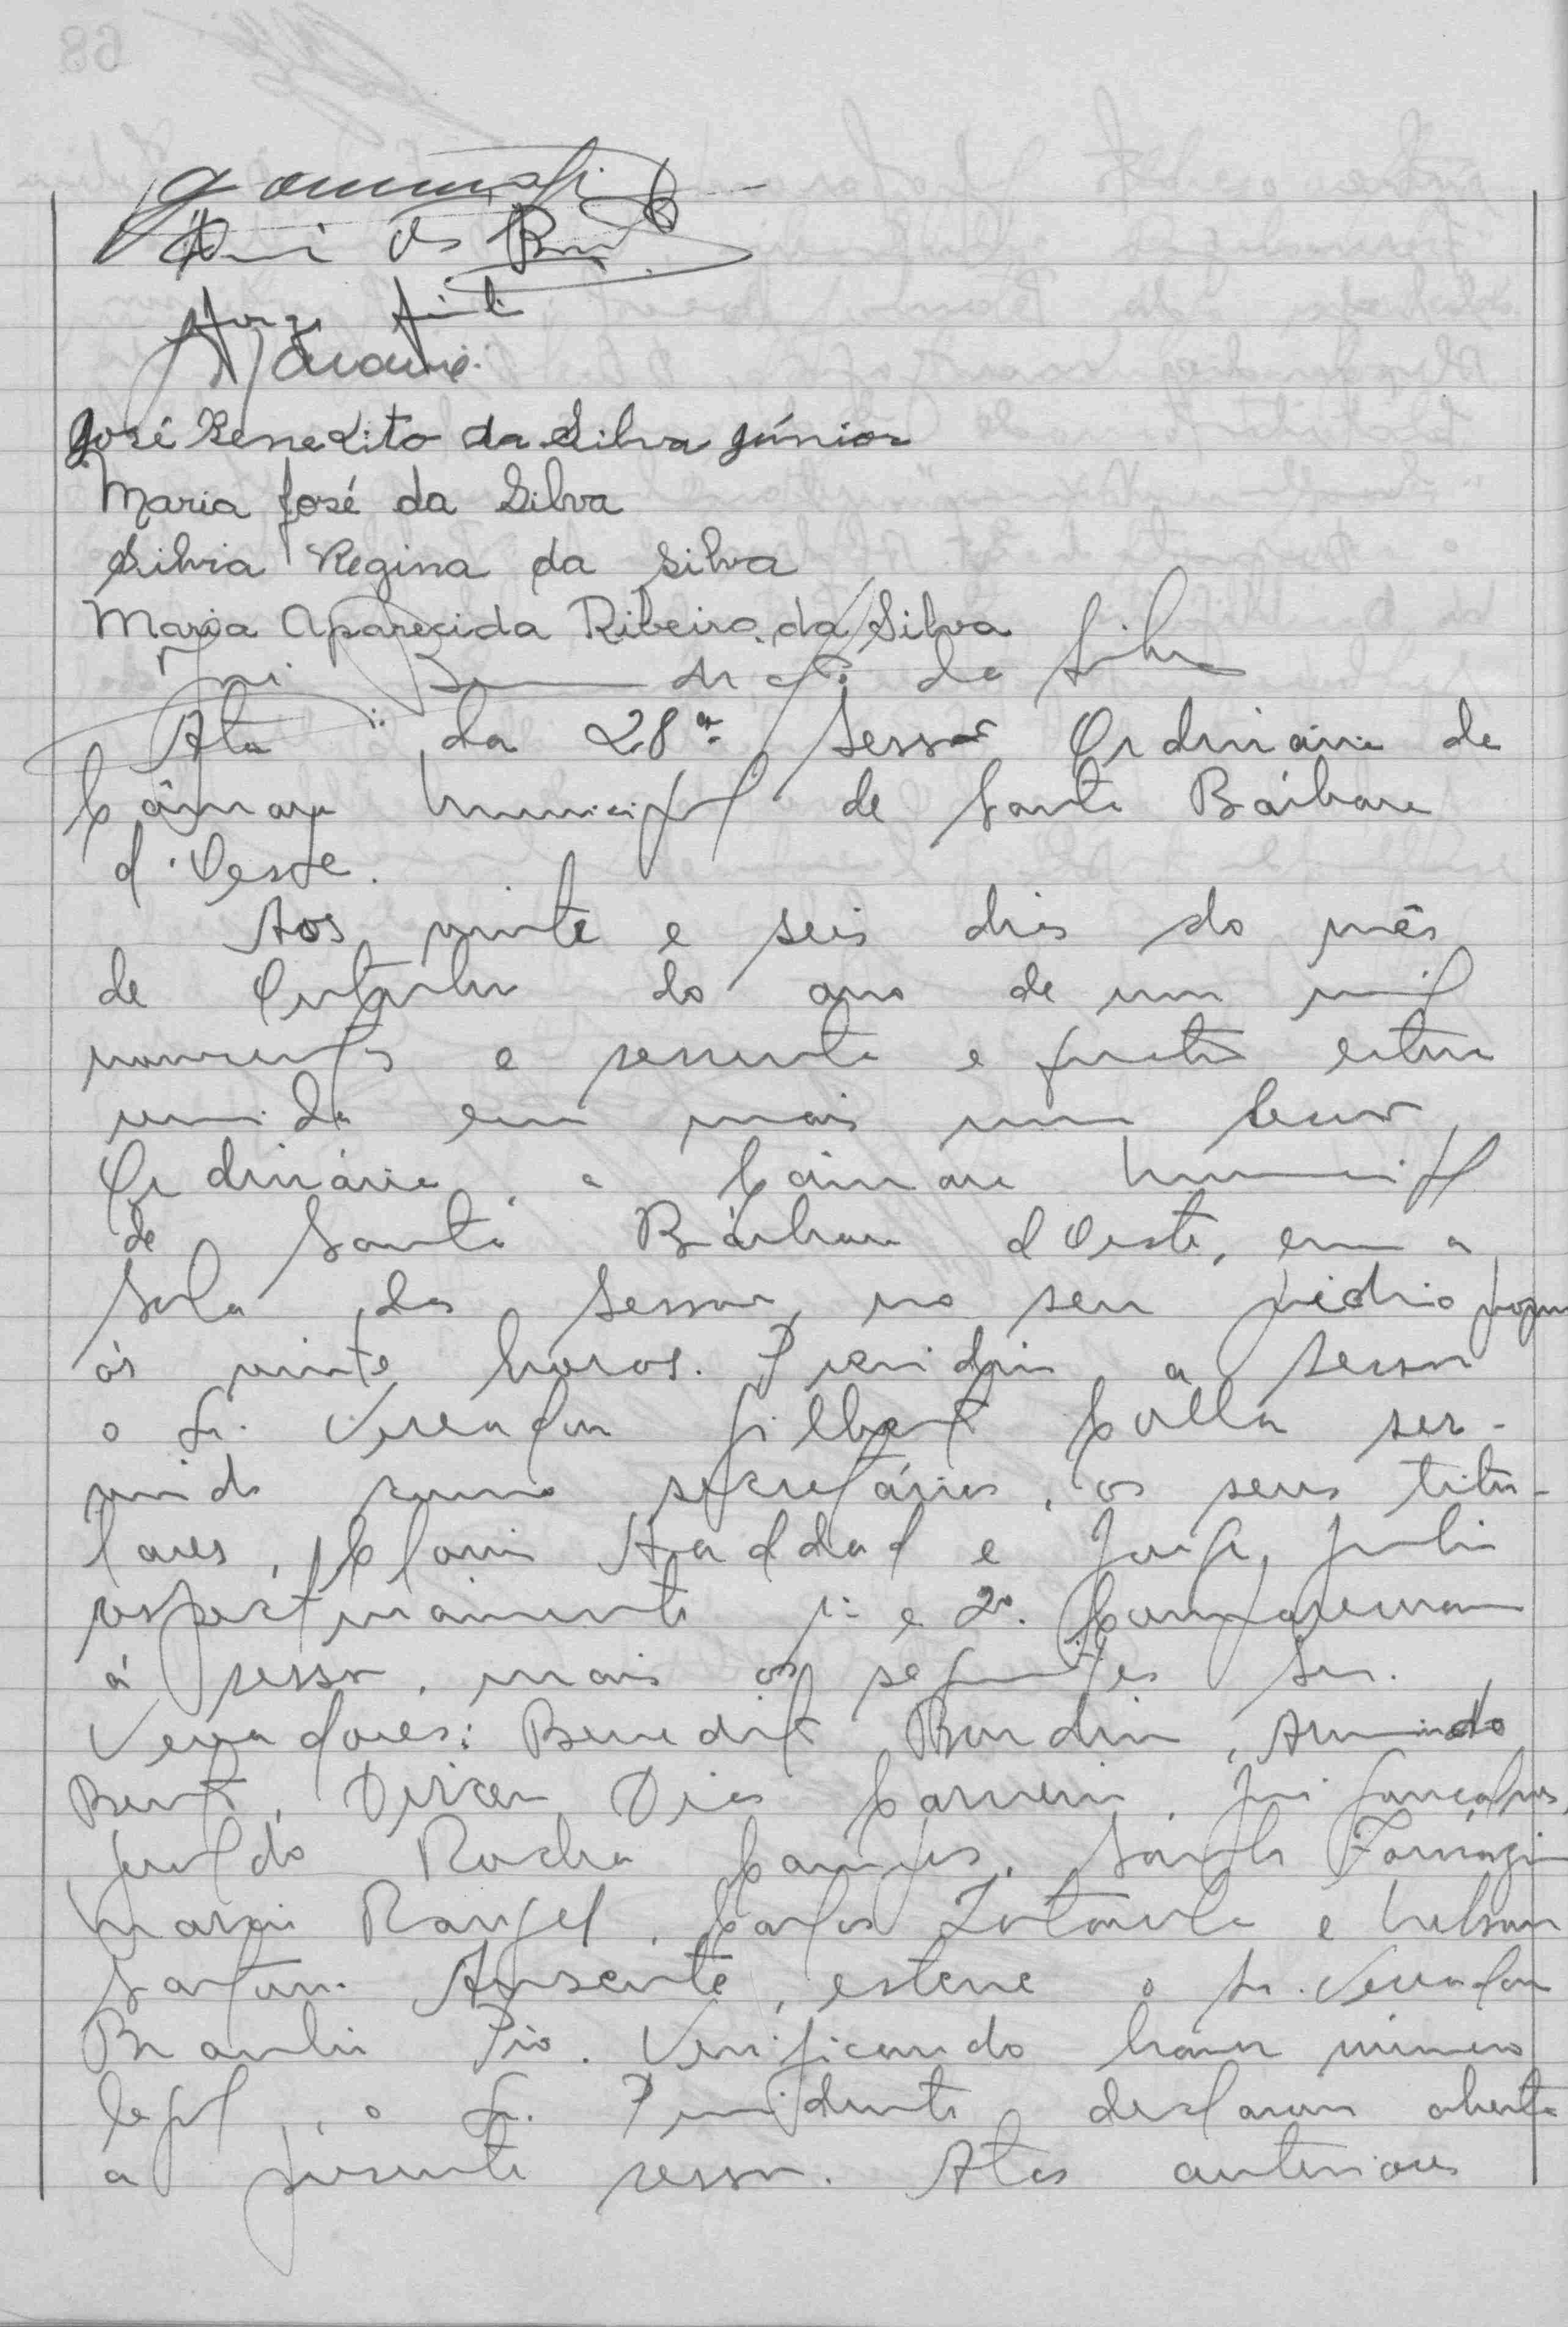 José Benedito da Silva Júnior
Maria José da Silva
Silvia Regina da Silva
Maria Aparecida Ribeiro da Silva
da Silva
Ata da 28ª Sessão Ordinária da
Câmara Municipal de Santa Bárbara
d'Oeste.
Aos vinte e seis dias do mês
de Outubro do ano de um mil
novecentos e sessenta e quatro esteve
reunida em mais uma Sessão
Ordinária, a Câmara Municipal
de Santa Bárbara d'Oeste, em a
Sala das Sessões, no seu prédio
às vinte horas. Presidiu a sessão
o Sr. Vereador Gilberto Colla ser-
vindo como secretários, os seus titu-
lares, Haddad e Jorge Juliu
respectivamente 1º e 2º. Compareceram
à sessão, mais os seguintes Srs.
Vereadores: Benedito Bordin, Armindo
Bento, Dirceu Dias Carneiro, José Gonçalves,
Geraldo Rocha Campos, Santo Fornazin
Rangel, Carlos e Nelson
Ausente, esteve o Sr. Vereador
Braulio Pio. Verificando haver número
legal, o Sr. Presidente declarou aberta
a presente sessão. Atas anteriores